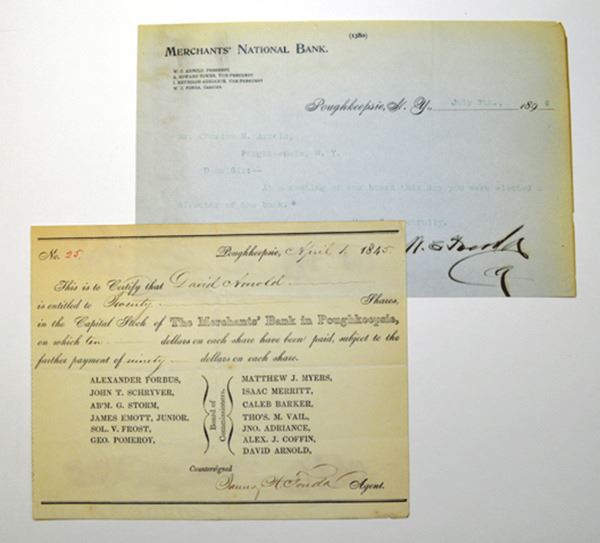 (1380)
MERCHANTS' NATIONAL BANK.
W. C. ARNOLD, PRESIDENT
A. EDWARD TOWER, VICE-PRESIDENT
I. REYNOLDS ADRIANCE, VICE-PRESIDENT
W. C. FONDA, CASHIER
Poughkeepsie, N. Y., July 7th., 189
Mr. M. Arnold,
Poughkeepsie, N. Y.
Dear Sir:--
At a meeting of our board this day you were elected a
director of the bank.
Fonda
No. 25. Poughkeepsie, April 1, 1845.
This is to Certify that David Arnold
is entitled to Twenty Shares,
in the Capital Stock of The Merchants' Bank in Poughkeepsie,
on which ten dollars on each share have been paid, subject to the
further payment of ninety dollars on each share.
ALEXANDER FORBUS,
JOHN T. SCHRYVER,
AB'M. G. STORM,
JAMES EMOTT, JUNIOR,
SOL. V. FROST,
GEO. POMEROY,
Board of
Commissioners.
MATTHEW J. MYERS,
ISAAC MERRITT,
CALEB BARKER,
THO'S. M. VAIL,
JNO. ADRIANCE,
ALEX. J. COFFIN,
DAVID ARNOLD,
Countersigned
James H. Fonda Agent.